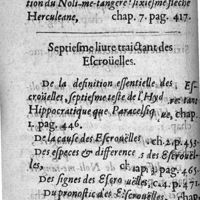 tion du Noli-me-tangere: sixiesme fleche
Herculeane, chap. 7. pag. 417.
Septiesme liure traictant des
Escroüelles.
De la definition essentielle des Es-
croüelles, septiesme teste de l'Hyd
Hippocratique que Paracelsiq chap.
1. pag. 446.
De la cause des Escroüelles ch. 2. p. 453.
Des especes & difference s des Escroüel-
les, ch 3. pag. 465.
Des signes des Escroüelles, c. 4. p. 471.
Du pronostic des Escroüelles, chap